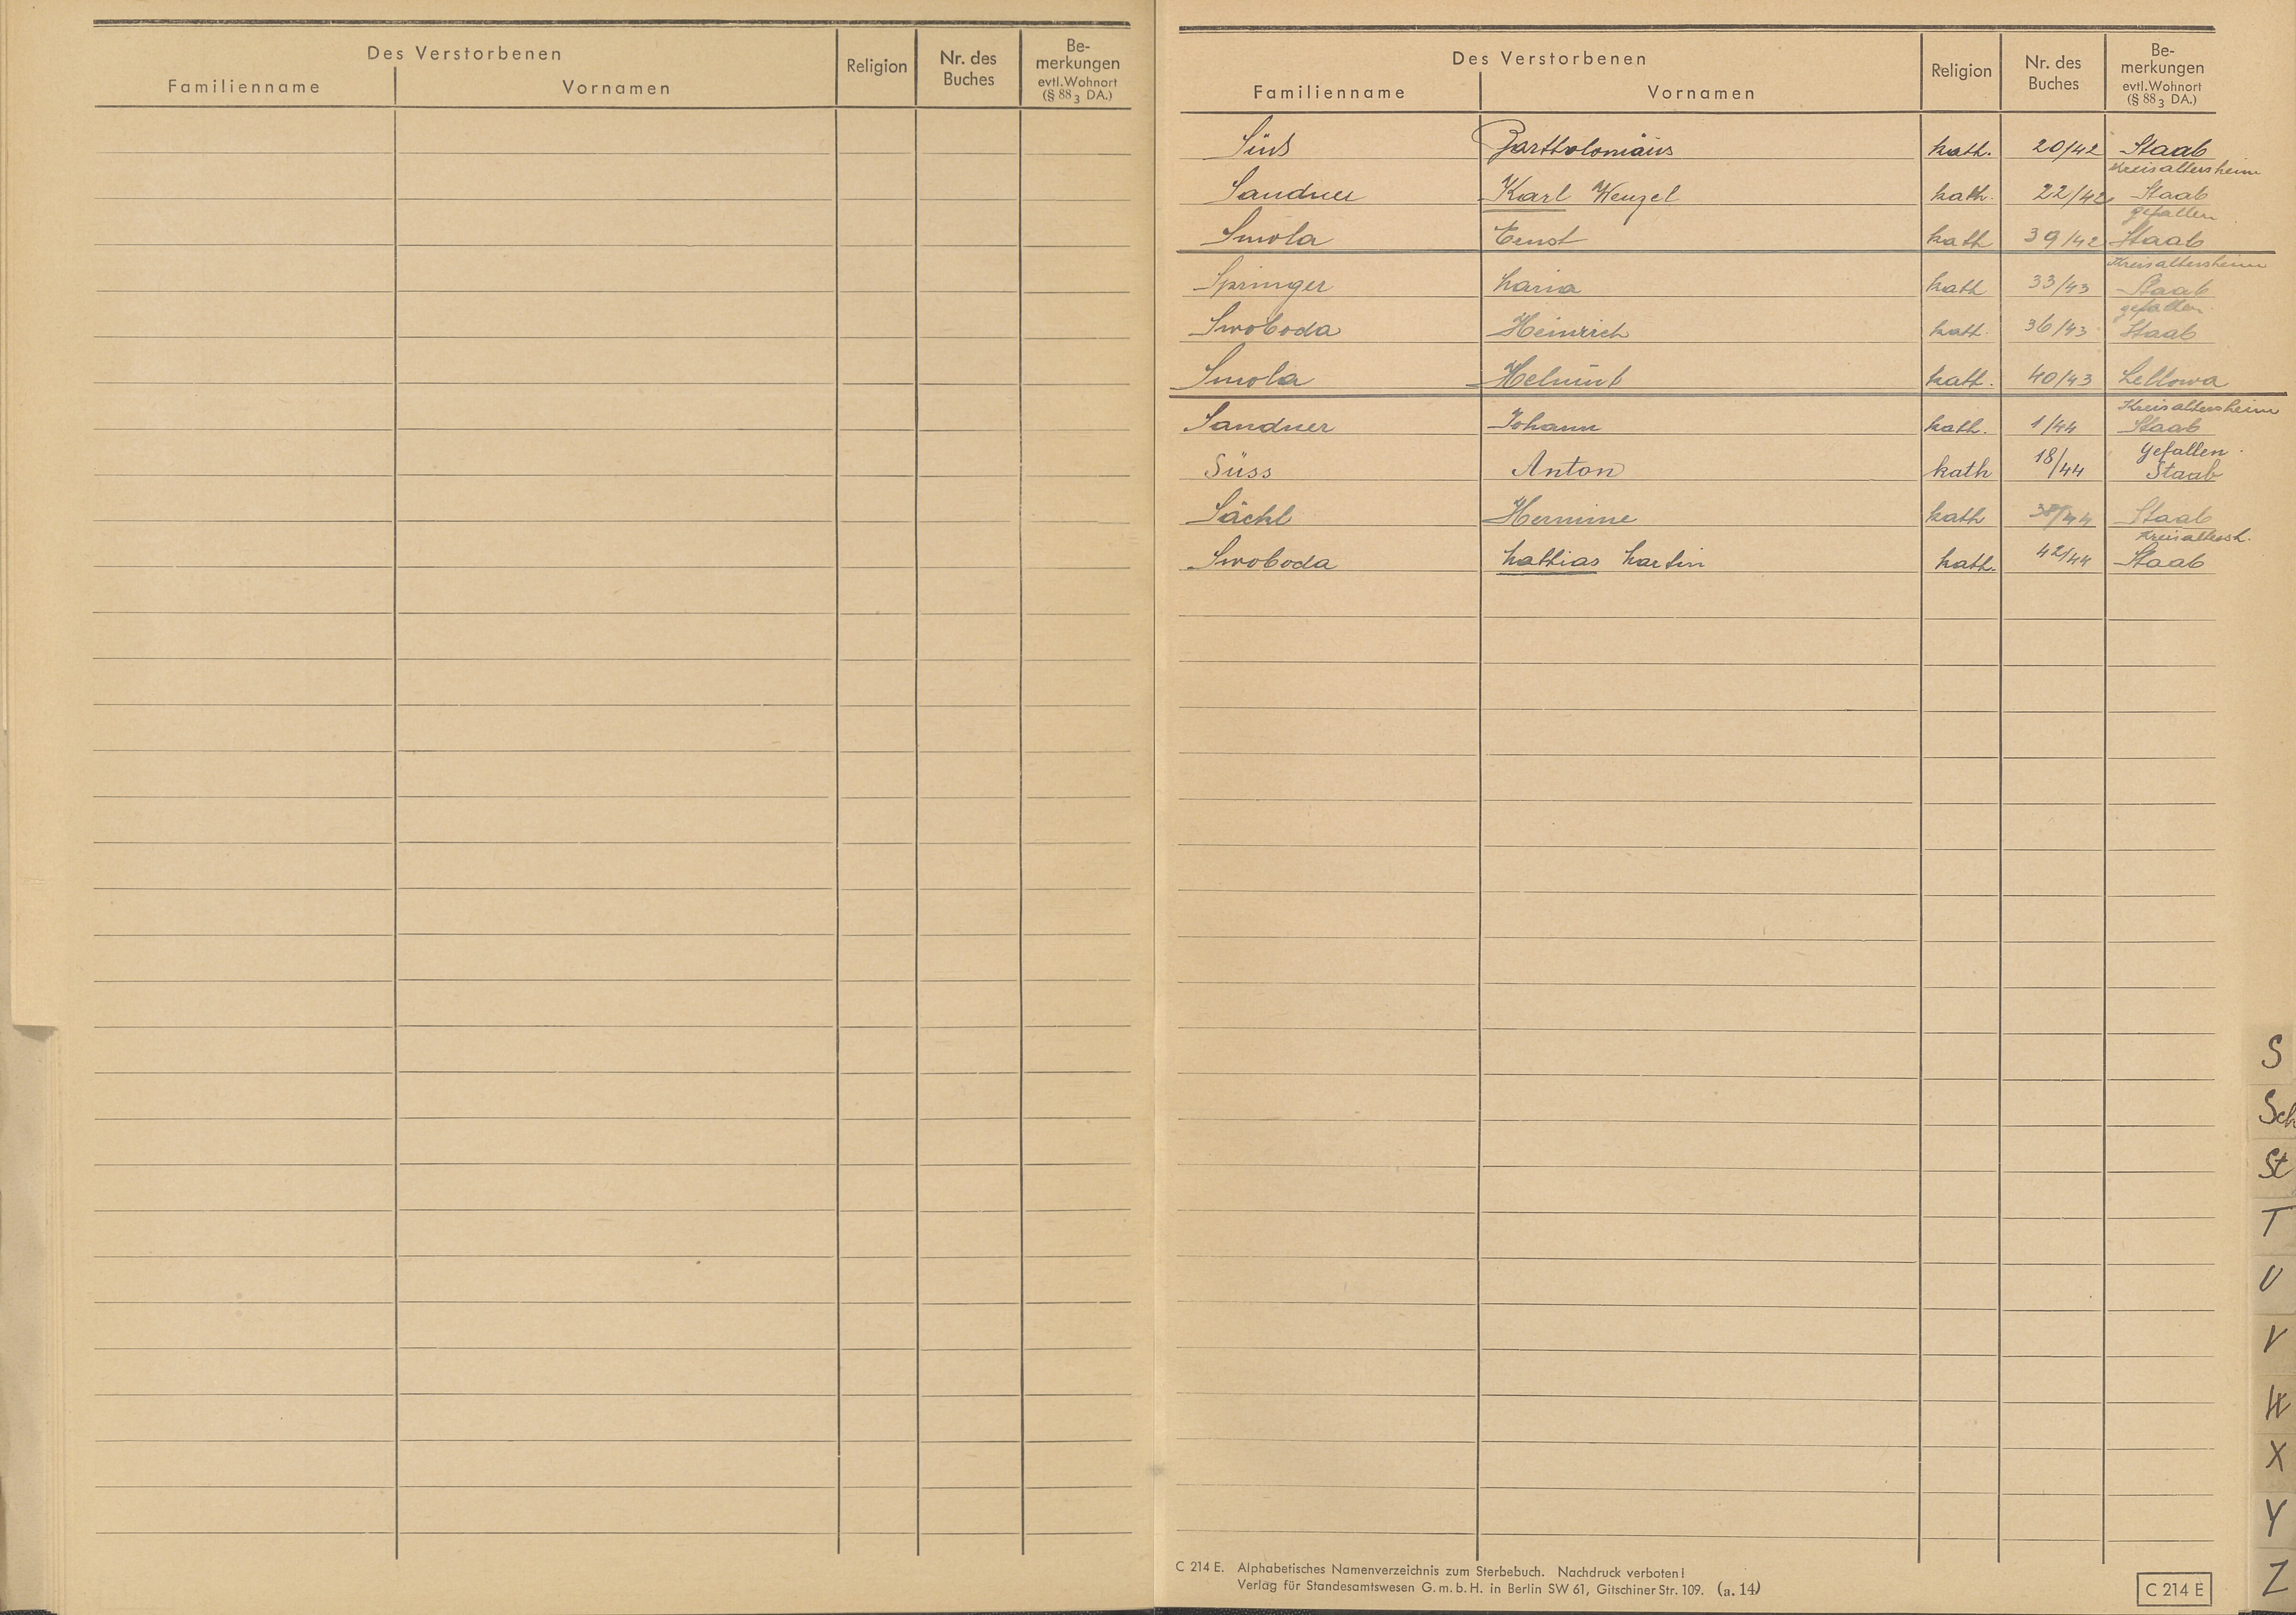 Des Verstorbenen
Familienname Vornamen Religion Nr. des Buches Be-merkungen evtl. Wohnort (§ 88 3 DA.)
Des Verstorbenen
Familienname Vornamen Religion Nr. des Buches Be-merkungen evtl. Wohnort (§ 88 3 DA.)
Süß Bartholomäus kath. 20/42 Staab
Kreisaltersheim
Sandner Karl Wenzel kath. 22/42 Staab
gefallen
Smola Ernst kath 39/42 Staab
Kreisaltersheim
Springer Maria kath 33/43 Staab
gefallen
Swoboda Heinrich kath. 36/43 Staab
Smola Helmut kath. 40/43 Mellowa
Kreisaltersheim
Sandner Johann kath. 1/44 Staab
gefallen
Süss Anton kath 18/44 Staab
Säckl Hermine kath Staab
Kreisaltersh.
Swoboda Mathias Martin kath. 42/44 Staab
S
Sch
St
T
U
V
W
X
Y
Z
C 214 E. Alphabetisches Namenverzeichnis zum Sterbebuch. Nachdruck verboten!
Verlag für Standesamtswesen G. m. b. H. in Berlin SW 61, Gitschiner Str. 109. (a. 14)
C 214 E